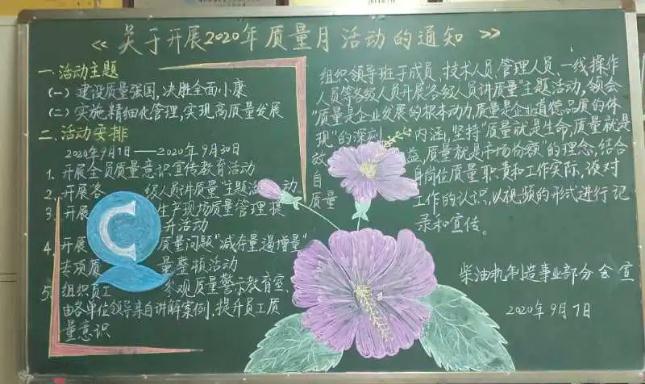 《关于开展2020年质量月活动的通知》
一.活动主题
(一) 建设质量强国,决胜全面小康
(二) 实施精细化管理,实现高质量发展
二.活动安排
2020年9月1日——2020年9月30日
1. 开展全员质量意识宣传教育活动
2. 开展各 级人员讲质量主题活 动
3. 开展 生产现场质量管理提
升活动
4. 开展 质量问题"减存量遏增量"
专项质 量整顿活动
5. 组织员工 参观质量警示教育室,
由各单位领导亲自讲解案例,提升员工质
量意识
组织领导班子成员、技术人员、管理人员、一线操作
人员等各级人员开展各级人员讲质量"主题活动,领会
"质量是企业发展的根本动力,质量是企业道德品质的体
现"的深刻 内涵,坚持"质量就是生命,质量就是
效 益,质量就是市场份额"的理念,结合
自 身岗位质量职责和工作实际,谈对
质量 工作的认识,以视频的形式进行记
录和宣传。
柴油机制造事业部分会宣
2020年9月7日
C